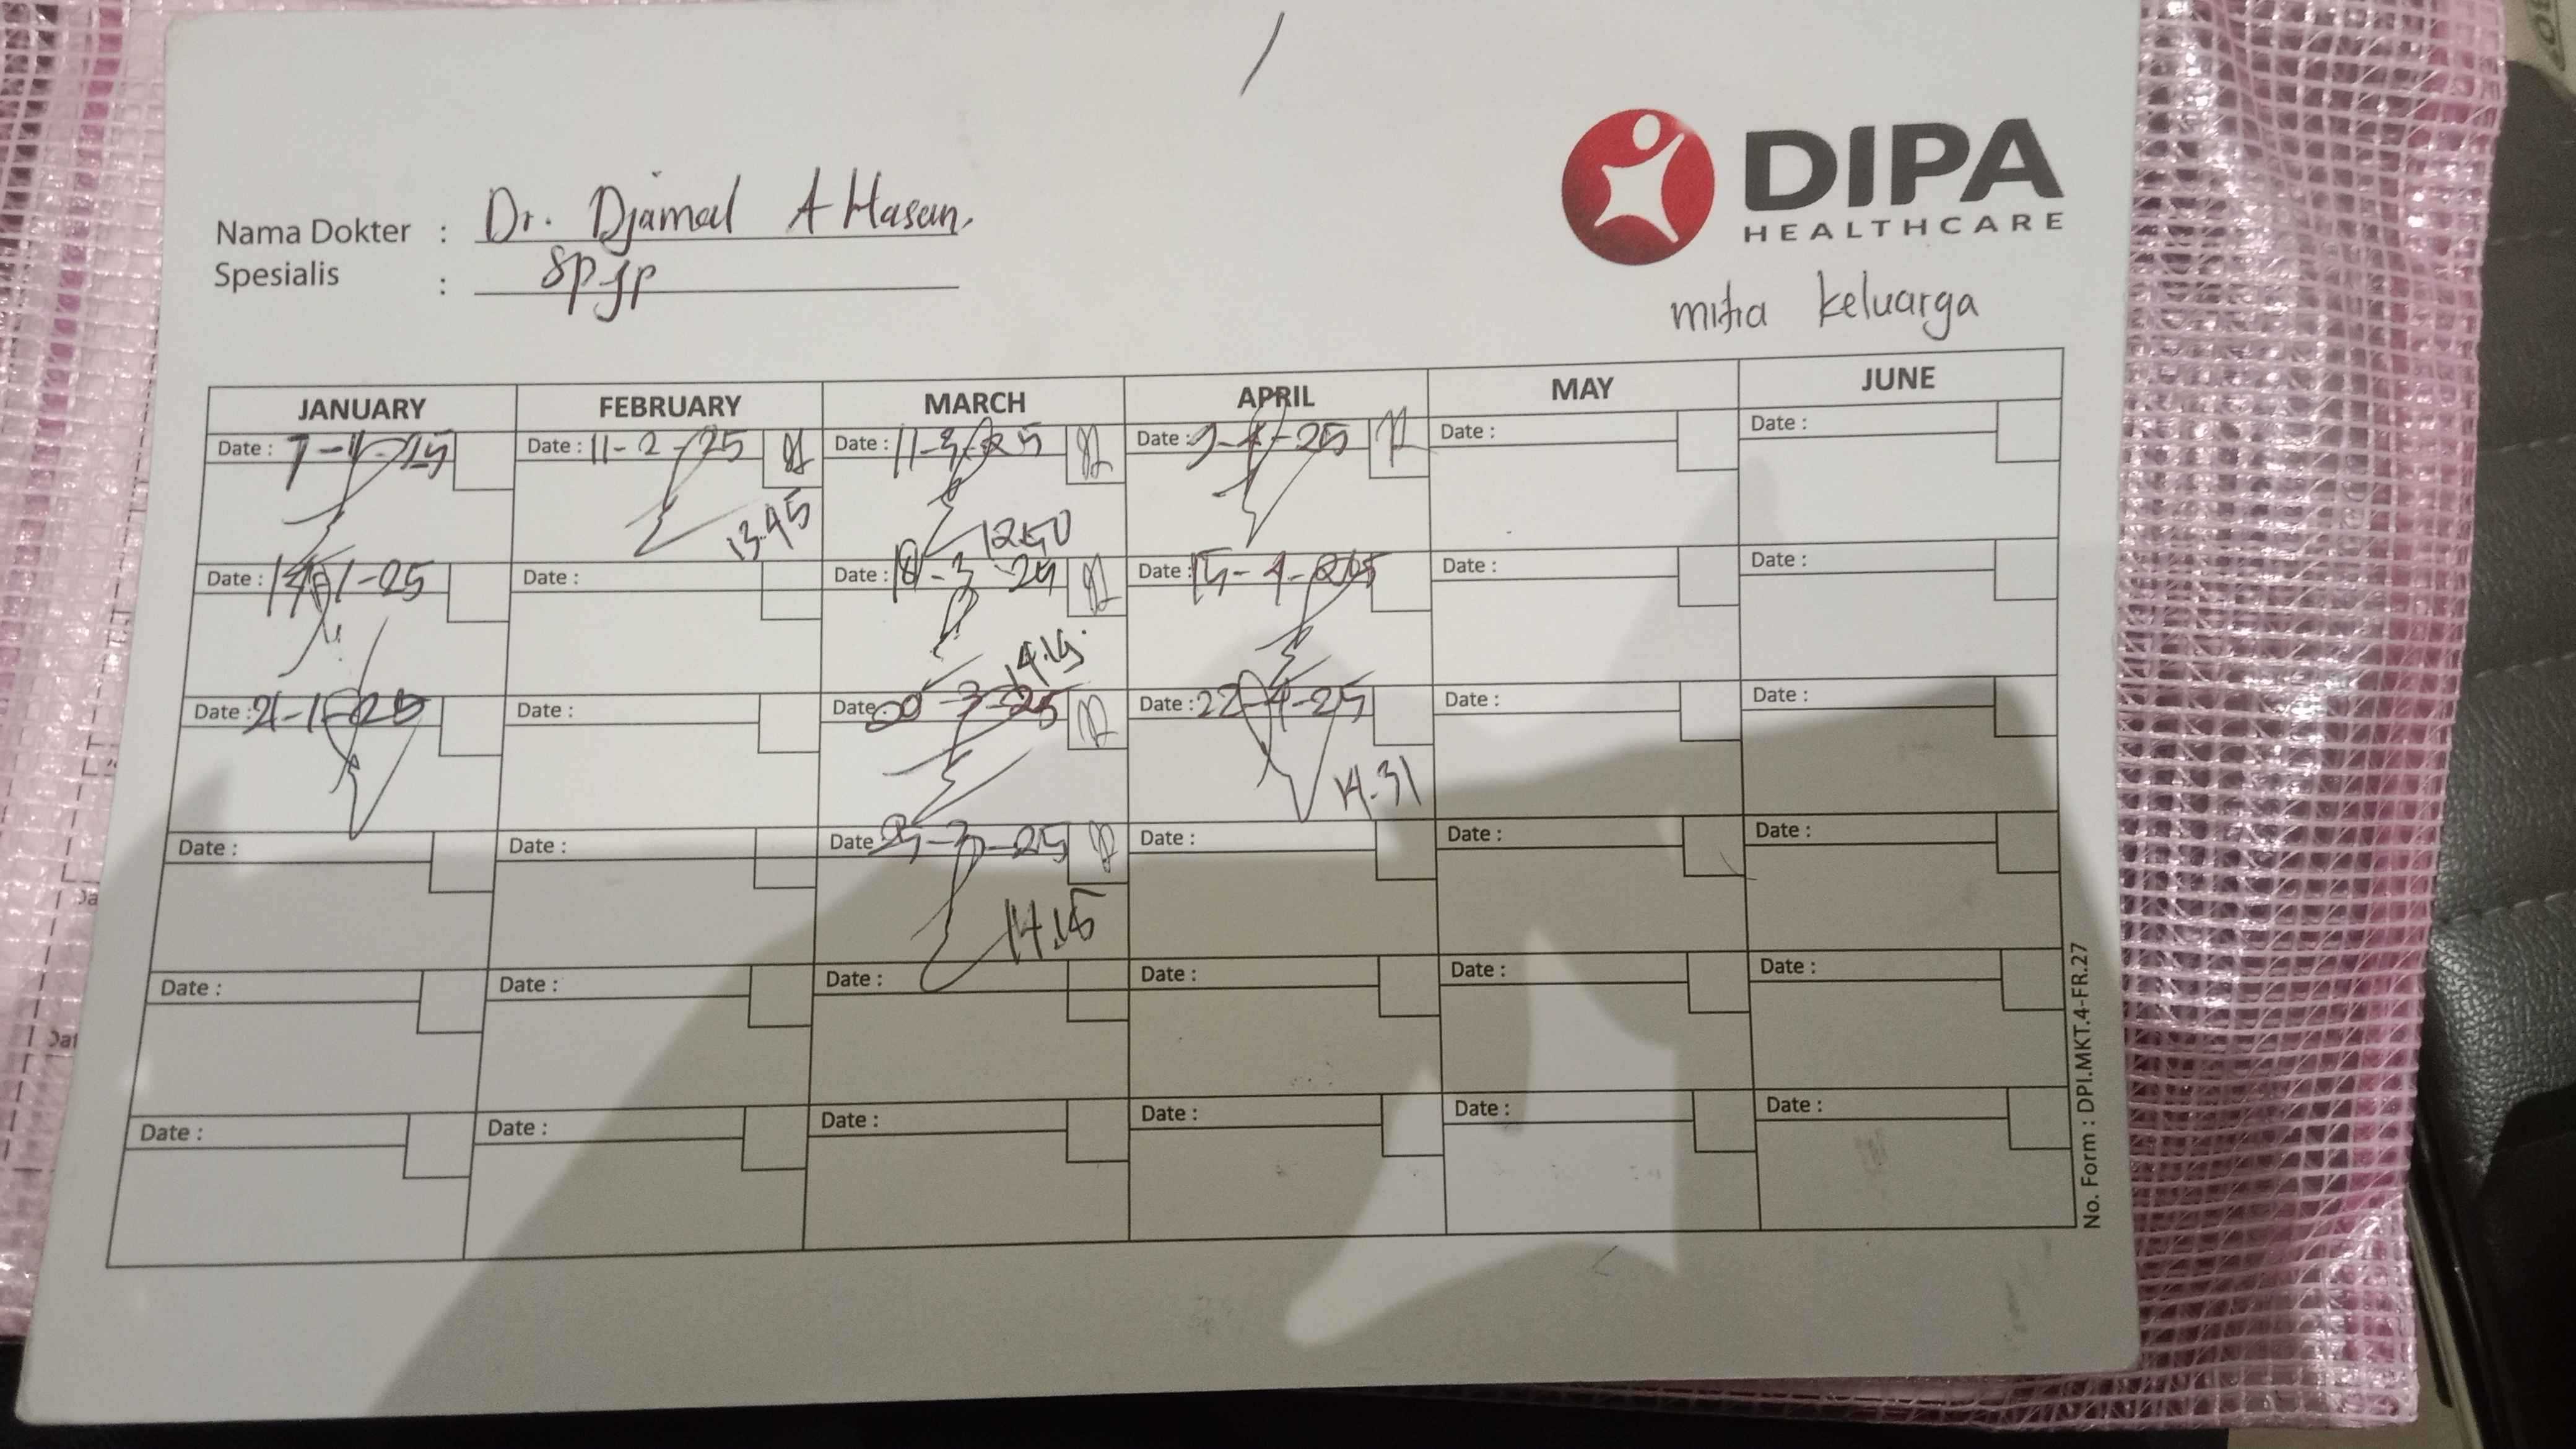 DIPA
HEALTHCARE
Nama Dokter : Dr. Djamal A Hasan,
Spesialis : SpJP
mitra keluarga
JANUARY FEBRUARY MARCH APRIL MAY JUNE
Date : 7-1-25 Date : 11-2-25 Date : 11-3-25 Date : 9-4-25 Date : Date :
13.45 12.50
Date : 14-1-25 Date : Date : 18-3-25 Date : 15-4-25 Date : Date :
14.15
Date : 21-1-25 Date : Date : 20-3-25 Date : 22-4-25 Date : Date :
14.31
Date : Date : Date : 25-3-25 Date : Date : Date :
14.15
Date : Date : Date : Date : Date : Date :
Date : Date : Date : Date : Date : Date :
No. Form : DPI.MKT.4-FR.27